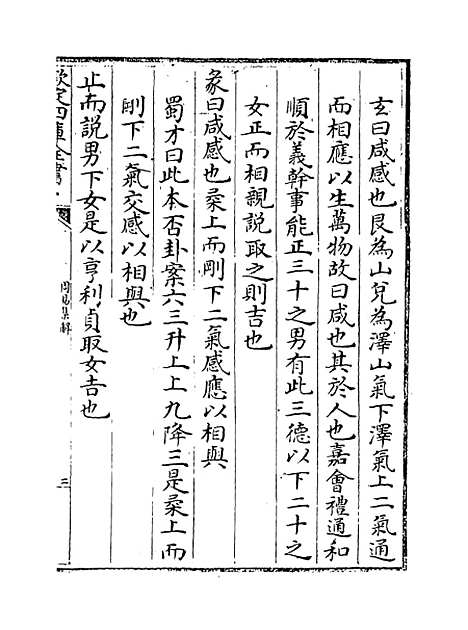 玄曰咸感也艮為山兌為澤山氣下澤氣上二氣通
而相應以生萬物故曰咸也其於人也嘉會禮通和
順於義幹事能正三十之男有此三德以下二十之
女正而相親說取之則吉也
彖曰咸感也柔上而剛下二氣感應以相與
蜀才曰此本否卦案六三升上上九降三是柔上而
剛下二氣交感以相與也
止而說男下女是以亨利貞取女吉也
欽定四庫全書
周易集解
三